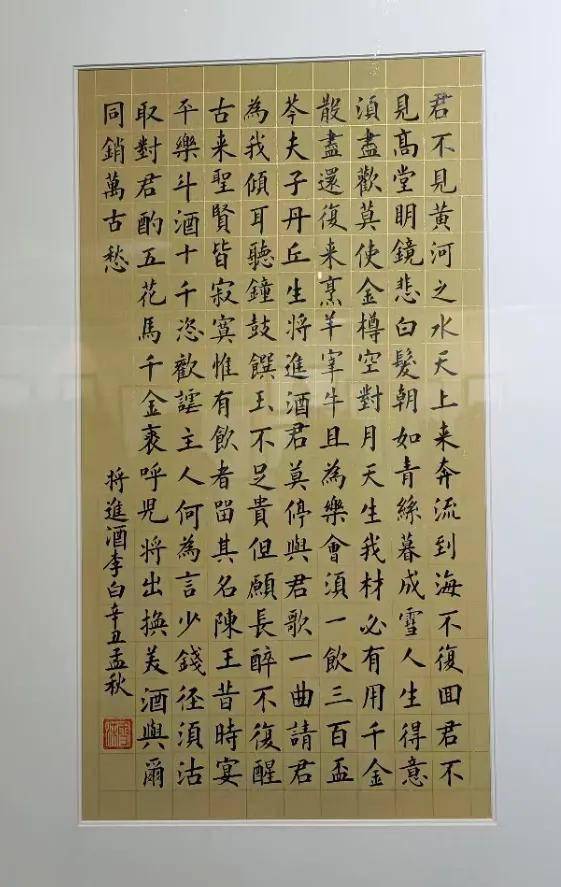 君不見黃河之水天上来奔流到海不復囬君不
見髙堂明鏡悲白髮朝如青絲暮成雪人生得意
須盡歡莫使金樽空對月天生我材必有用千金
散盡還復来烹羊宰牛且為樂會須一飲三百盃
芩夫子丹丘生将進酒君莫停與君歌一曲請君
為我傾耳聽鐘鼓饌玉不足貴但願長醉不復醒
古来聖賢皆寂寞惟有飲者留其名陳王昔時宴
平樂斗酒十千恣歡謔主人何為言少錢径須沽
取對君酌五花馬千金裘呼児将出換美酒與爾
同銷萬古愁
将進酒李白辛丑孟秋